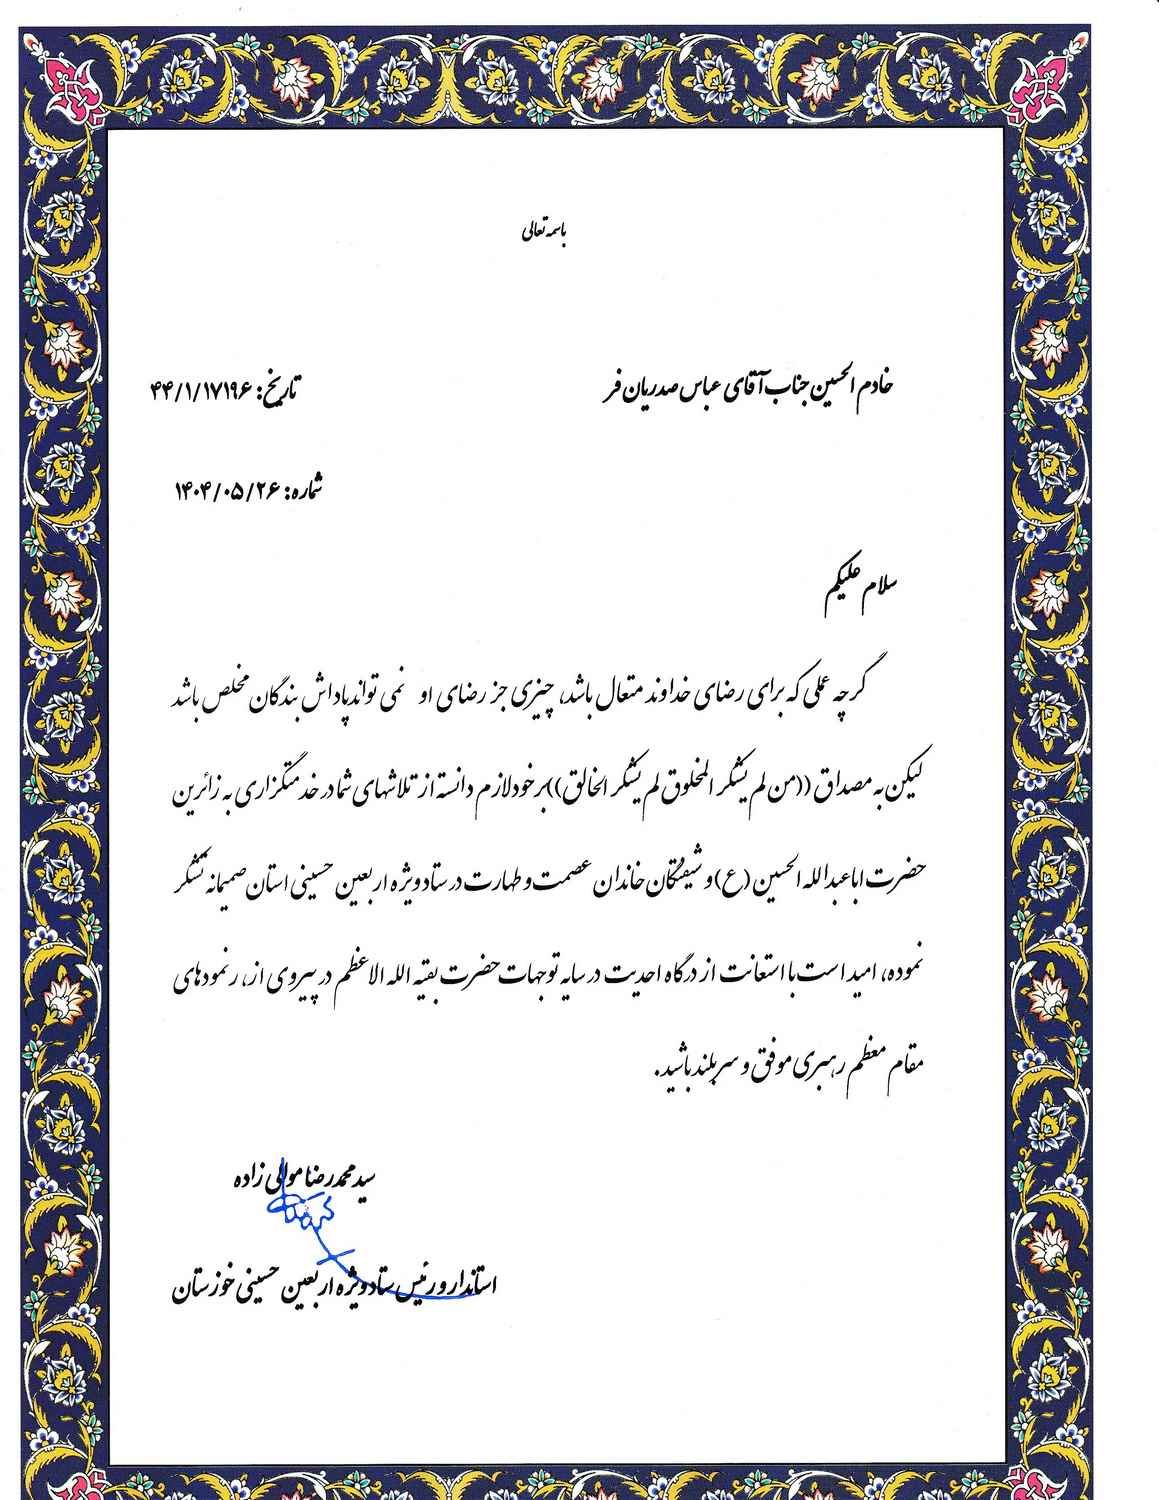 باسمه تعالی
خادم الحسین جناب آقای عباس صدریان فر
تاریخ: ۴۴/۱/۱۷۱۹۶
شماره: ۱۴۰۴/۰۵/۲۶
سلام علیکم
گرچه عملی که برای رضای خداوند متعال باشد، چیزی جز رضای او نمی تواند پاداش بندگان مخلص باشد
لیکن به مصداق ((من لم یشکر المخلوق لم یشکر الخالق)) بر خود لازم دانسته از تلاشهای شما در خدمتگزاری به زائرین
حضرت اباعبدالله الحسین (ع) و شیفتگان خاندان عصمت و طهارت در ستاد ویژه اربعین حسینی استان صمیمانه تشکر
نموده، امید است با استعانت از درگاه احدیت در سایه توجهات حضرت بقیه الله الاعظم در پیروی از رنمودهای
مقام معظم رهبری موفق و سربلند باشید.
سید محمدرضا موالی زاده
استاندار و رئیس ستاد ویژه اربعین حسینی خوزستان